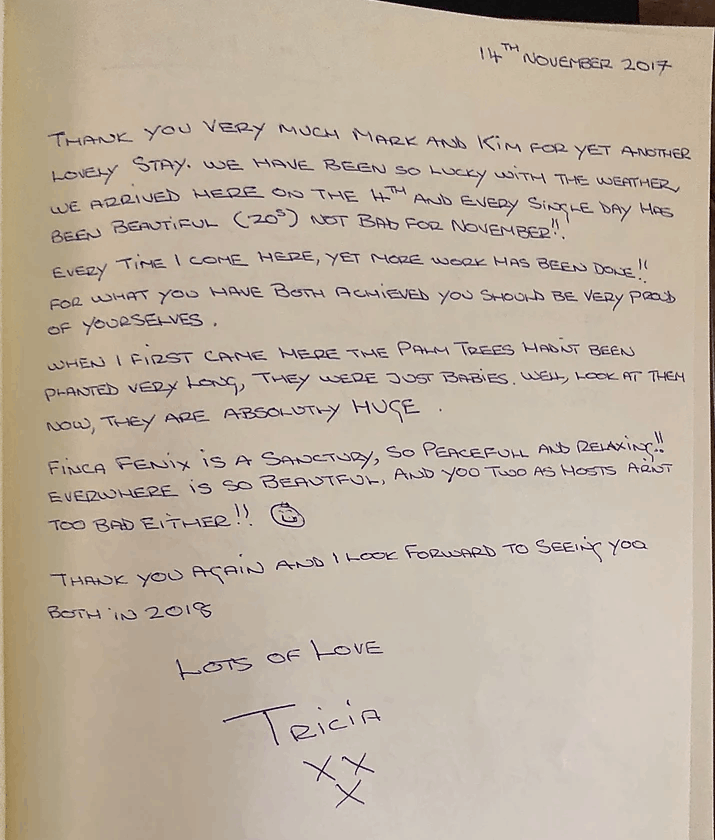 14TH NOVEMBER 2017
THANK YOU VERY MUCH MARK AND KIM FOR YET ANOTHER
LOVELY STAY. WE HAVE BEEN SO LUCKY WITH THE WEATHER,
WE ARRIVED HERE ON THE 4TH AND EVERY SINGLE DAY HAS
BEEN BEAUTIFUL (20S) NOT BAD FOR NOVEMBER!!.
EVERY TIME I COME HERE, YET MORE WORK HAS BEEN DONE!!
FOR WHAT YOU HAVE BOTH ACHIEVED YOU SHOULD BE VERY PROUD
OF YOURSELVES.
WHEN I FIRST CAME HERE THE PALM TREES HADN'T BEEN
PLANTED VERY LONG, THEY WERE JUST BABIES. WELL, LOOK AT THEM
NOW, THEY ARE ABSOLUTLY HUGE.
FINCA FENIX IS A SANCTURY, SO PEACEFULL AND RELAXING!!
EVERWHERE IS SO BEAUTFUL, AND YOU TWO AS HOSTS ARNT
TOO BAD EITHER!!
THANK YOU AGAIN AND I LOOK FORWARD TO SEEING YOU
BOTH IN 2018
LOTS OF LOVE
TRICIA
X X
X